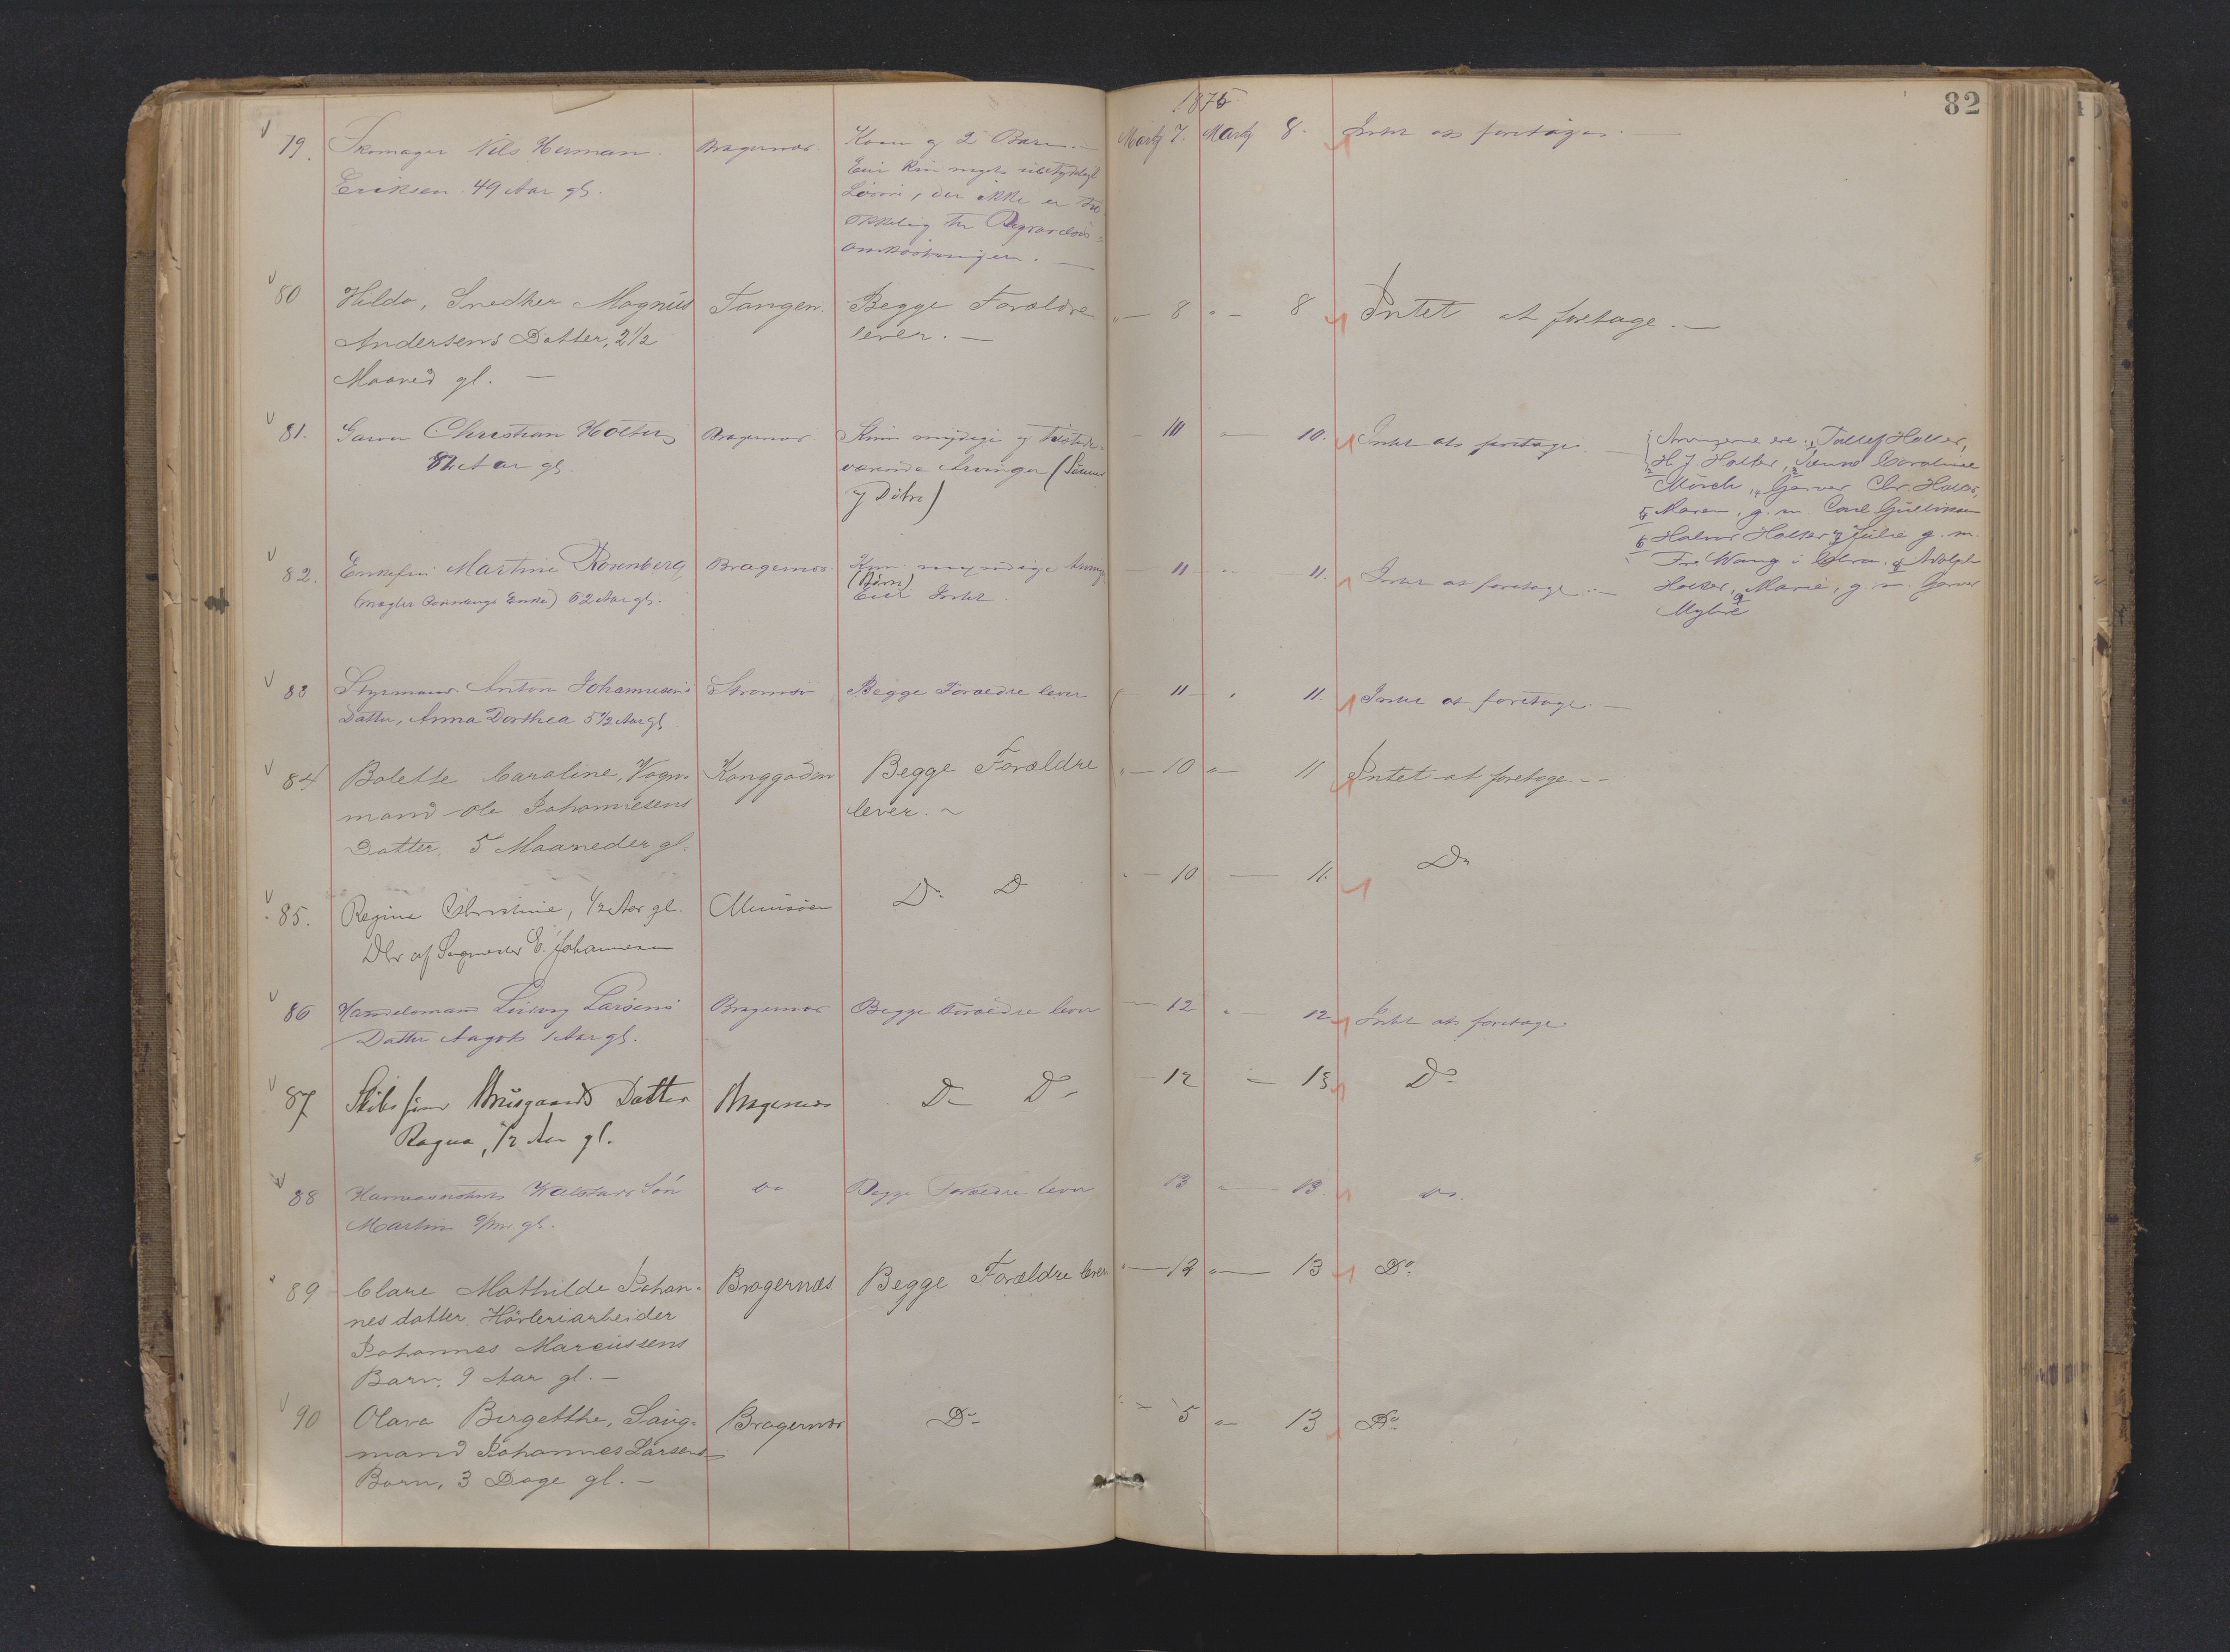 1875
82
79. Skomager Nils Herman Bragernæs Kone og 2 Børn. Martz 7. Martz 8. Intet at foretages.
Eriksen 49 Aar gl. Eier kun noget ubetydeligt
Løsøre, der ikke er til-
strækkelig til Begravelses-
omkostninger.
80 Hilda, Snedker Magnus Tangen. Begge Forældre " — 8 " — 8 Intet at foretage. —
Andersens Datter, 2 1/2 lever. —
Maaned gl. —
81. Garver Christian Holter Bragernæs Kun myndige og tilstede- — 10 — 10. Intet at foretage. —
82 Aar gl. værende Arvinger (Sønner
og Døtre)
Arvingerne ere: 1, Tollef Holter,
2 H. J. Holter, 3 Caroline
Mørch, 4 Garver Chr. Holter,
5 Maren, g. m. Carl Gulliksen
6 Halvor Holter, 7 Julie g. m.
Wang i Chra. 8 Adolph
Holter, 9 Marie, g. m. Garver
Myhre
82. Enkefru Martine Rosenberg Bragernæs. Kun myndige Arving. — 11 " — 11. Intet at foretage. —
(Mægler Rosenbergs Enke) 62 Aar gl. (Børn)
Eier Intet.
83 Styrmand Anton Johannesens Strømsø Begge Forældre lever — 11 — " 11. Intet at foretage. —
Datter, Anna Dorthea 5 1/2 Aar gl.
84 Bolette Caroline, Vogn- Konggaden Begge Forældre " — 10 " — 11 Intet at foretage. —
mand Ole Johannesens lever. ~
Datter, 5 Maaneder gl.
85. Regine Christine, 1/2 Aar gl. D° D " — 10 — 11. D°
Dtr af E. Johannesen
86 Handelsmand Ludvig Larsens Bragernæs Begge Forældre lever — 12 " — 12 Intet at foretage
Datter Aagot 1 Aar gl.
87 Datter Bragernæs D° D° — 12 — 13 D°
Ragna, 1/2 Aar gl.
88 Søn Do. Begge Forældre lever 13 " — 13. Do.
Martin gl.
89 Clare Mathilde Johan- Bragernæs Begge Forældre lever " — 12 " — 13 D°.
nesdatter Høvleriarbeider
Johannes Marcussens
Barn, 9 Aar gl. —
90 Olava Birgetthe, Saug- Bragernæs D° " — 5 " — 13 D°.
mand Johannes Larsens
Barn, 3 Dage gl. —